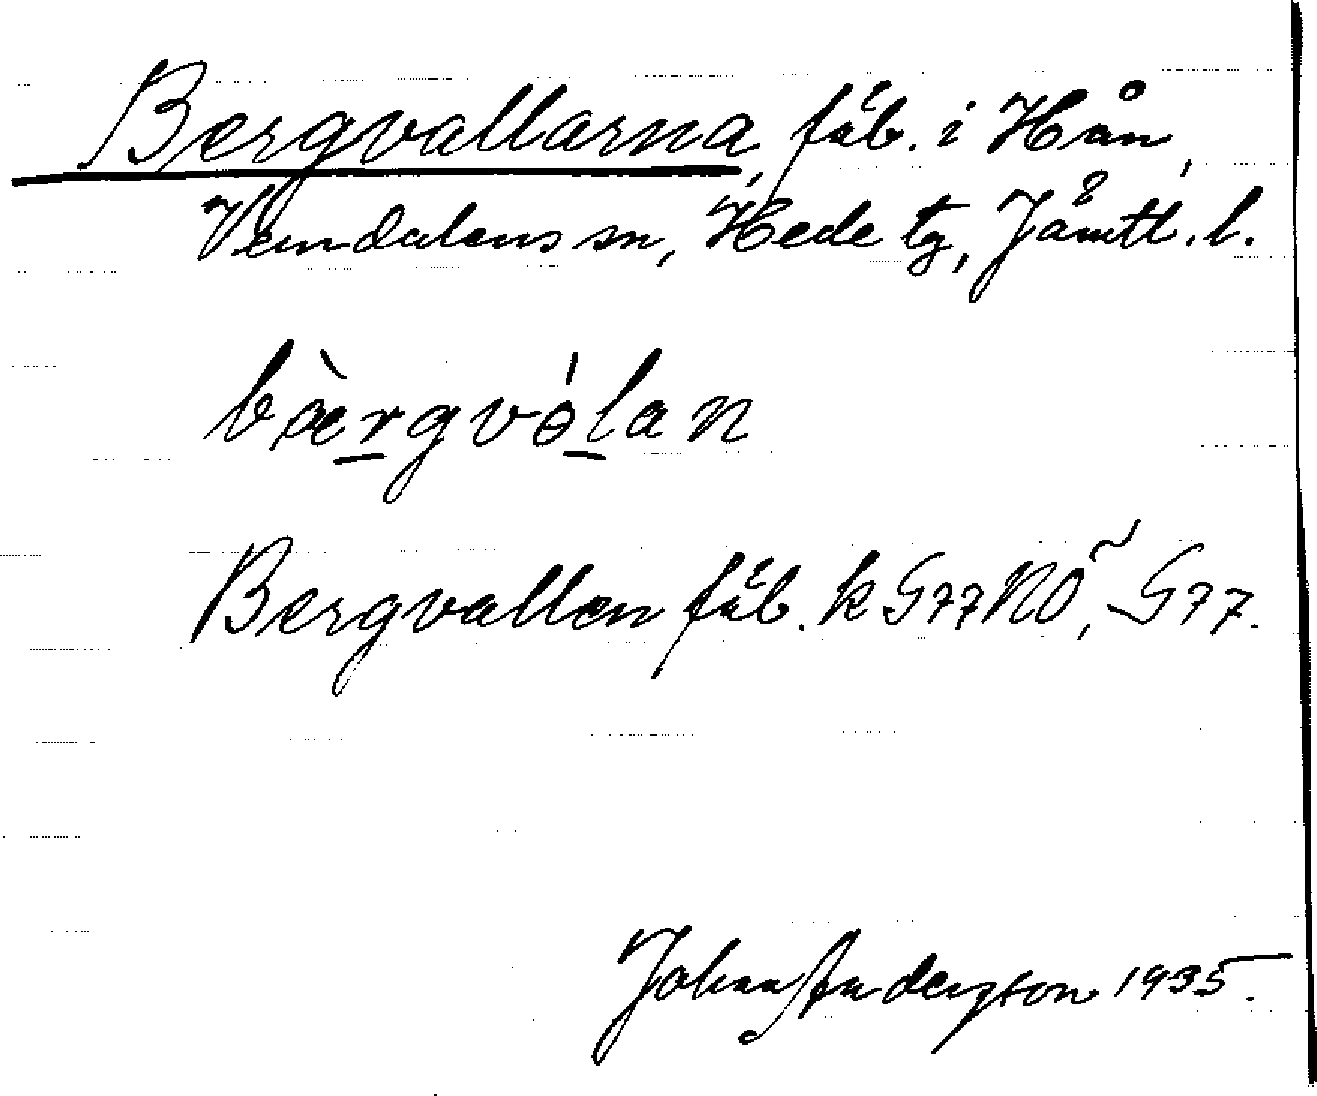 Bergvallarna, fäb. i Hån,
Vemdalens sn, Hede tg, Jämtl. l.
bæ̀rgvɵ́lan
Bergvallen fäb. k G77NO, G77.
Johan Anderzson 1935.